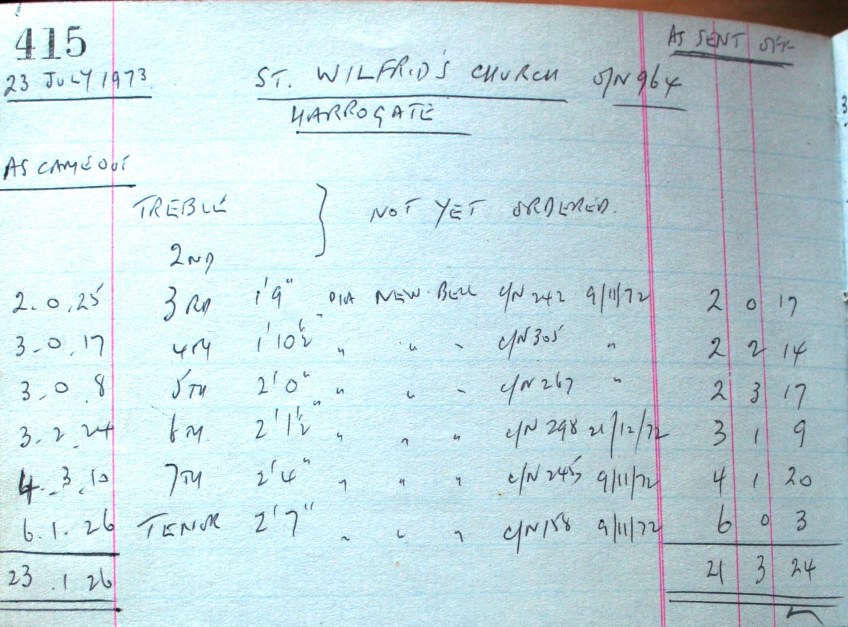 415 AS SENT OFF
23 JULY 1973 ST. WILFRID'S CHURCH O/N 964
HARROGATE
AS CAME OUT
TREBLE } NOT YET ORDERED.
2ND
2.0.25 3RD 1'9" DIA NEW BELL C/N 242 9/11/72 2 0 17
3.0.17 4TH 1'10½" " " " C/N 305 " 2 2 14
3.0.8 5TH 2'0" " " " C/N 267 " 2 3 17
3.2.24 6TH 2'1½" " " " C/N 298 21/12/72 3 1 9
4.3.10 7TH 2'4" " " " C/N 245 9/11/72 4 1 20
6.1.26 TENOR 2'7" " " " C/N 158 9/11/72 6 0 3
23.1.26 21 3 24